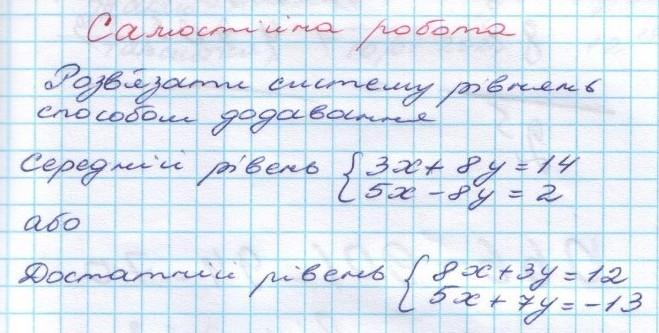 Самостійна робота
Розв'язати систему рівнянь
способом додавання
Середній рівень { 3x + 8y = 14
5x - 8y = 2
або
Достатній рівень { 8x + 3y = 12
5x + 7y = -13